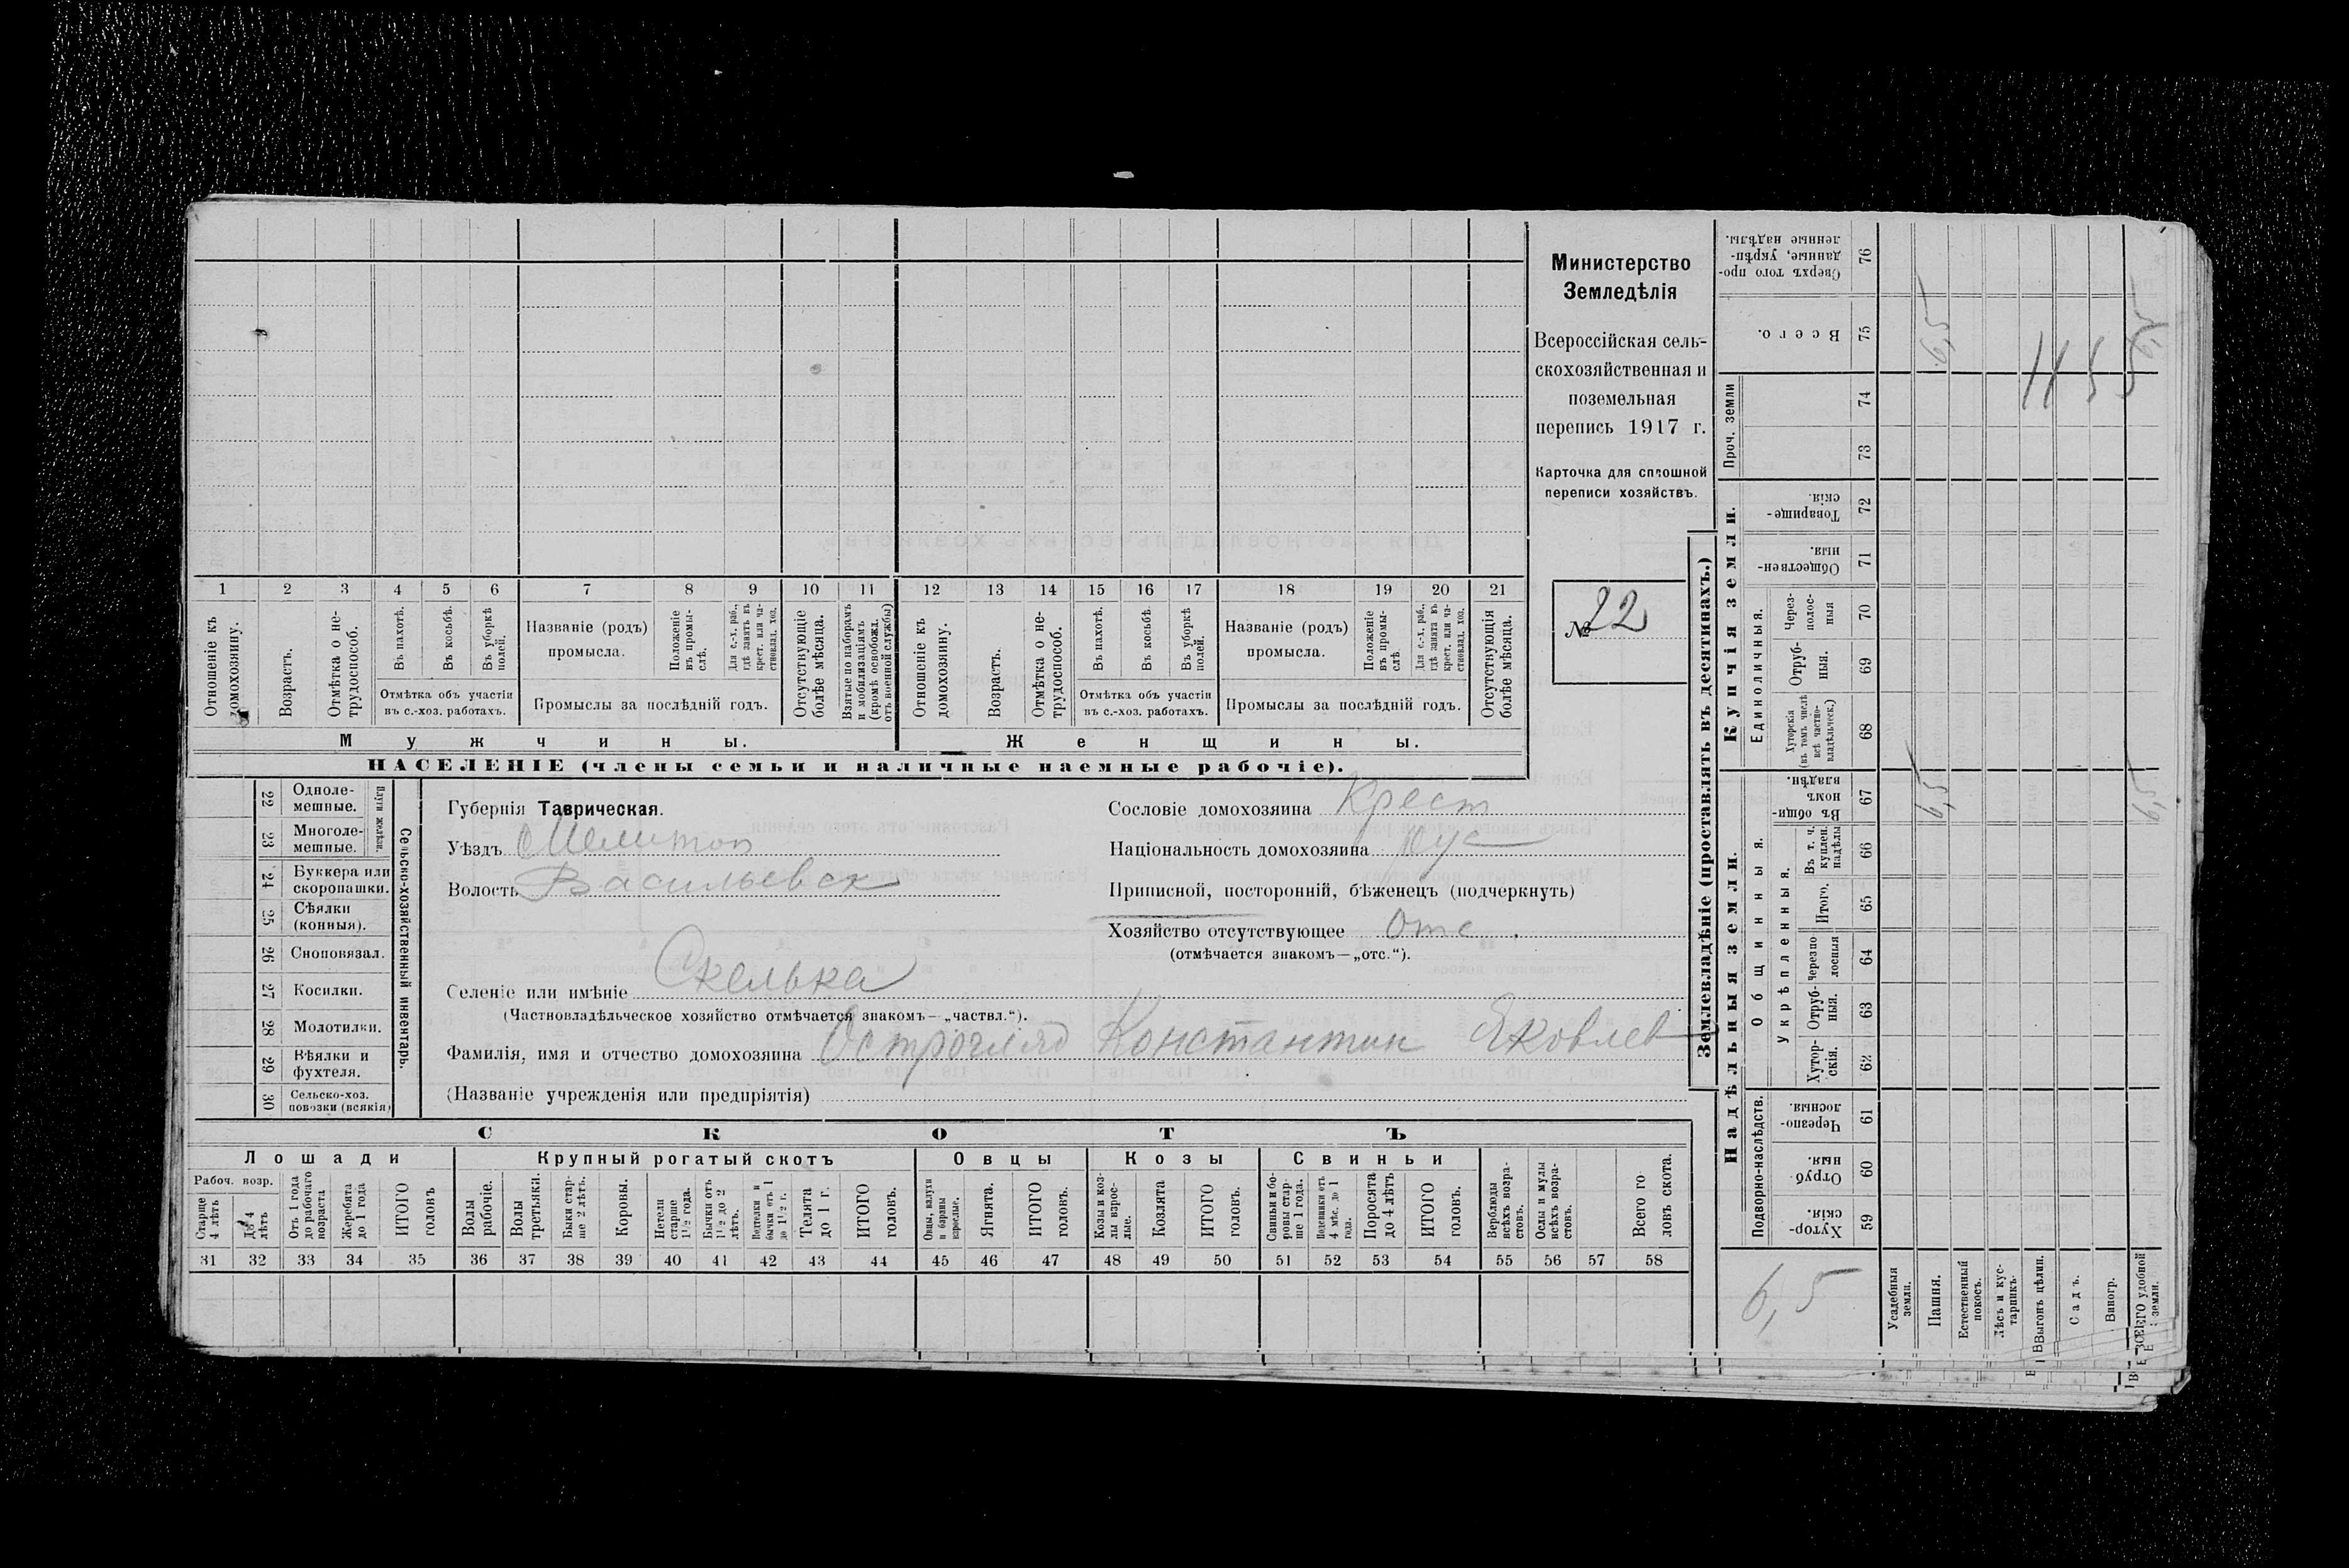 Министерство
Земледѣлія
Всероссійская сель-
скохозяйственная и
поземельная
перепись 1917 г.
Карточка для сплошной
переписи хозяйствъ.
№ 22
1 2 3 4 5 6 7 8 9 10 11 12 13 14 15 16 17 18 19 20 21
Отношеніе къ домохозяину.
Возрастъ.
Отмѣтка о не-трудоспособ.
Въ пахотѣ.
Въ косьбѣ.
Въ уборкѣ полей.
Отмѣтка объ участіи
въ с.-хоз. работахъ.
Названіе (родъ)
промысла.
Положеніе въ промы-слѣ.
Для с.-х. раб., гдѣ занятъ въ крест. или ча-стновлад. хоз.
Промыслы за послѣдній годъ.
Отсутствующіе болѣе мѣсяца.
Взятые по наборамъ и мобилизаціямъ (кромѣ освобожд. отъ военной службы)
Отношеніе къ домохозяину.
Возрастъ.
Отмѣтка о не-трудоспособ.
Въ пахотѣ.
Въ косьбѣ.
Въ уборкѣ полей.
Отмѣтка объ участіи
въ с.-хоз. работахъ.
Названіе (родъ)
промысла.
Положеніе въ промы-слѣ.
Для с.-х. раб., гдѣ занята въ крест. или ча-стновлад. хоз.
Промыслы за послѣдній годъ.
Отсутствующія болѣе мѣсяца.
Мужчины.
Женщины.
НАСЕЛЕНІЕ (члены семьи и наличные наемные рабочіе).
22 Одноле-мешные.
23 Многоле-мешные.
Плуги желѣзн.
24 Буккера или скоропашки.
25 Сѣялки (конныя).
26 Сноповязал.
27 Косилки.
28 Молотилки.
29 Вѣялки и фухтеля.
30 Сельско-хоз. повозки (всякія)
Сельско-хозяйственный инвентарь.
Губернія Таврическая.
Уѣздъ Мелитоп
Волость Васильевск
Сословіе домохозяина Крест
Національность домохозяина рус
Приписной, посторонній, бѣженецъ (подчеркнуть)
Хозяйство отсутствующее отс.
(отмѣчается знакомъ—„отс.“).
Селеніе или имѣніе Скелька
(Частновладѣльческое хозяйство отмѣчается знакомъ—„частвл.“).
Фамилія, имя и отчество домохозяина Острогляд Константин Яковлев
(Названіе учрежденія или предпріятія)
СКОТЪ
Лошади
Крупный рогатый скотъ
Овцы
Козы
Свиньи
Рабоч. возр.
Старше 4 лѣтъ
До 4 лѣтъ
Отъ 1 года до рабочаго возраста
Жеребята до 1 года
ИТОГО головъ
Волы рабочіе.
Волы третьяки.
Быки стар-ше 2 лѣтъ.
Коровы.
Нетели старше 1½ года.
Бычки отъ 1½ до 2 лѣтъ.
бычки отъ 1 до 1½ г.
Телята до 1 г.
ИТОГО головъ.
Овцы, валухи и бараны взрослые.
Ягнята.
ИТОГО головъ.
Козы и коз-лы взрос-лые.
Козлята
ИТОГО головъ.
Свиньи и бо-ровы стар-ше 1 года.
Подсвинки отъ 4 мѣс. до 1 года.
Поросята до 4 лѣтъ
ИТОГО головъ.
Верблюды всѣхъ возра-стовъ.
Ослы и мулы всѣхъ возра-стовъ.
Всего го-ловъ скота.
31 32 33 34 35 36 37 38 39 40 41 42 43 44 45 46 47 48 49 50 51 52 53 54 55 56 57 58
Землевладѣніе (проставлять въ десятинахъ.)
Надѣльныя земли.
Купчія земли.
Проч. земли
Подворно-наслѣдств.
Общинныя.
Укрѣпленныя.
Единоличныя.
Сверхъ того про-данные, укрѣп-ленные надѣлы. 76
Всего. 75
74
73
Товарище-скія. 72
Обществен-ныя. 71
Через-полос-ныя 70
Отруб-ныя. 69
Хуторскія (въ томъ числѣ всѣ частно-владѣльческ.) 68
Въ общи-номъ владѣн. 67
Въ т. ч. куплен. надѣлы 66
Итого. 65
Черезпо-лосныя 64
Отруб-ныя. 63
Хутор-скія. 62
Черезпо-лосныя. 61
Отруб-ныя. 60
Хутор-скія. 59
6,5
6,5
6,5
6,5
6,5
Усадебныя земли.
Пашня.
Естественный покосъ.
Лѣсъ и кус-тарникъ.
Выгонъ цѣлин.
Садъ.
Виногр.
ВСЕГО удобной земли.